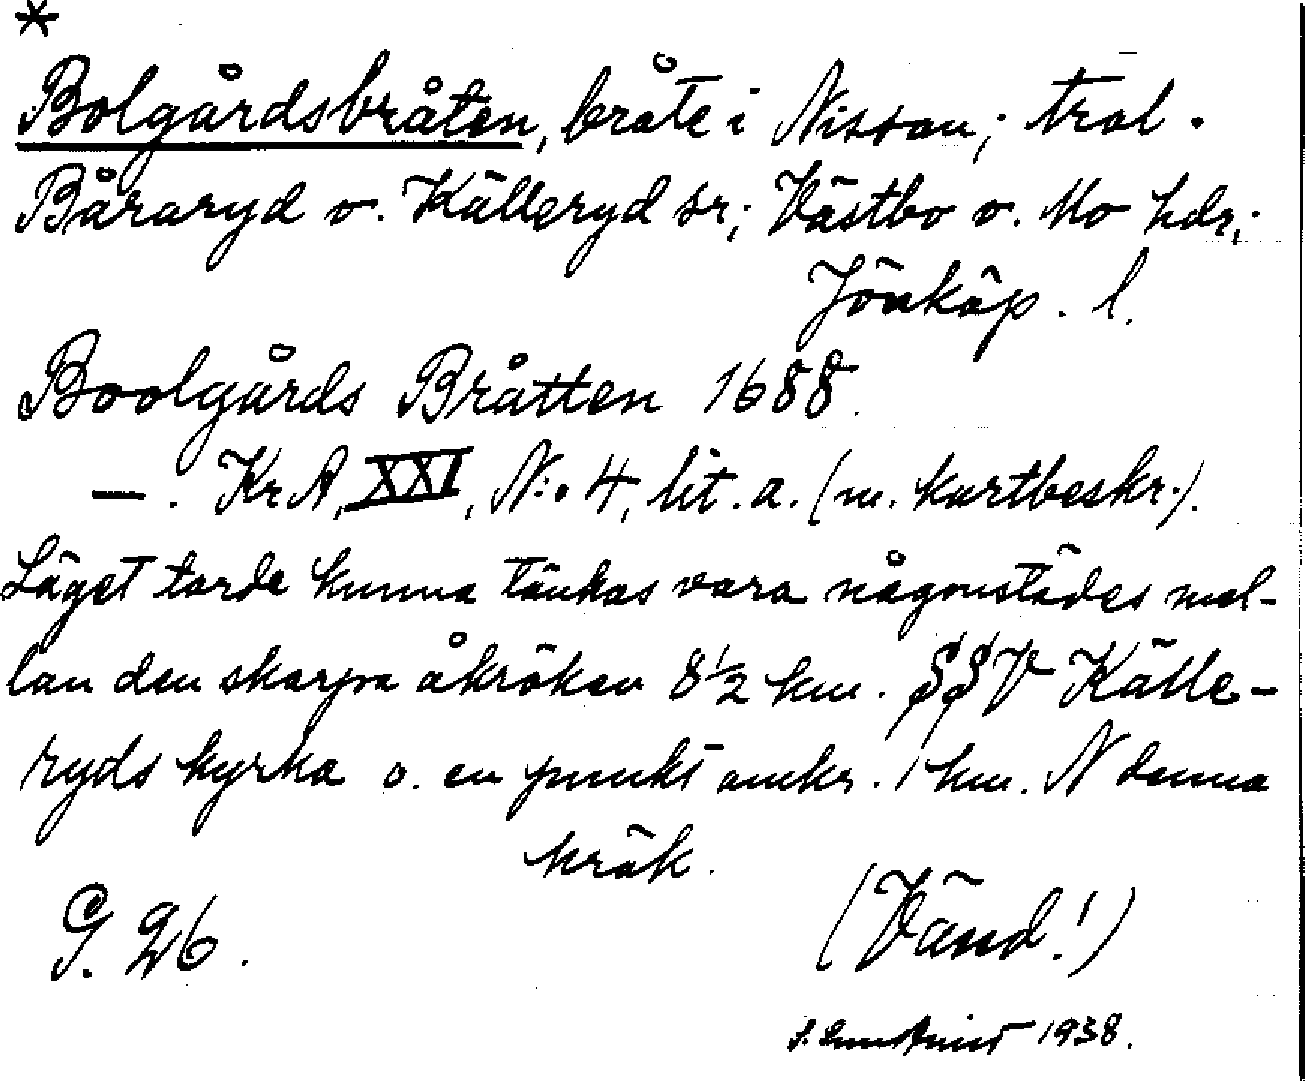 *
Bolgårdsbråten, bråte i Nissan; trol.
Båraryd o. Källeryd sr; Västbo o. Mo hdr;
Jönköp. l.
Boolgårds Bråtten 1688.
—. KrA, XXI, N:o 4, lit. a. (m. kartbeskr.).
Läget torde kunna tänkas vara någonstädes mel-
lan den skarpa åkröken 8 1/2 km. SSV Källe-
ryds kyrka o. en punkt omkr. 1 km. N denna
krök.
G. 26.
(Vänd!)
1938.